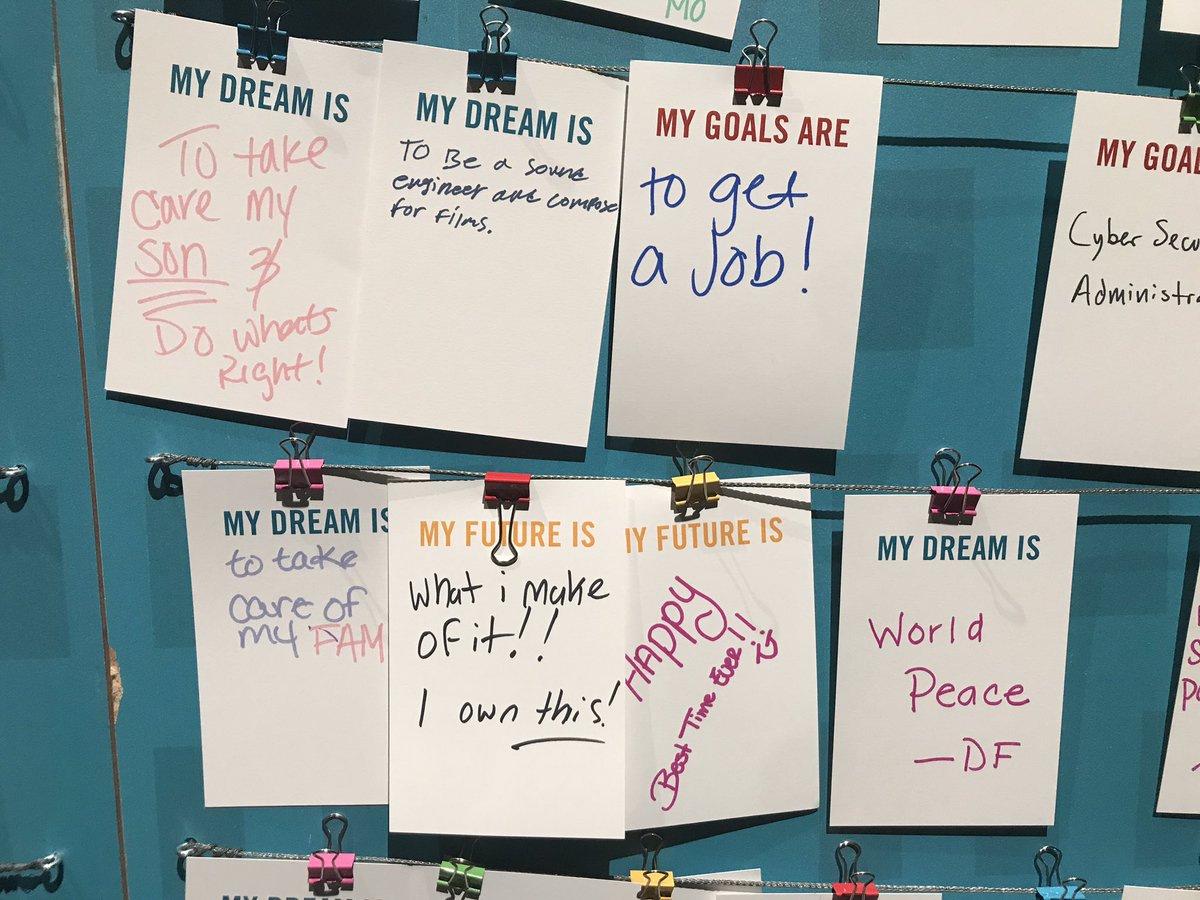 MO
MY DREAM IS
To take
care my
son &
Do whats
Right!
MY DREAM IS
To Be a sound
engineer and compose
for films.
MY GOALS ARE
to get
a Job!
MY GOAL
Cyber Secu
Administra
MY DREAM IS
to take
care of
my FAM
MY FUTURE IS
What i make
of it!!
I own this!
MY FUTURE IS
HAPPY
Best Time Ever!!
MY DREAM IS
World
Peace
—DF
MY DREAM IS